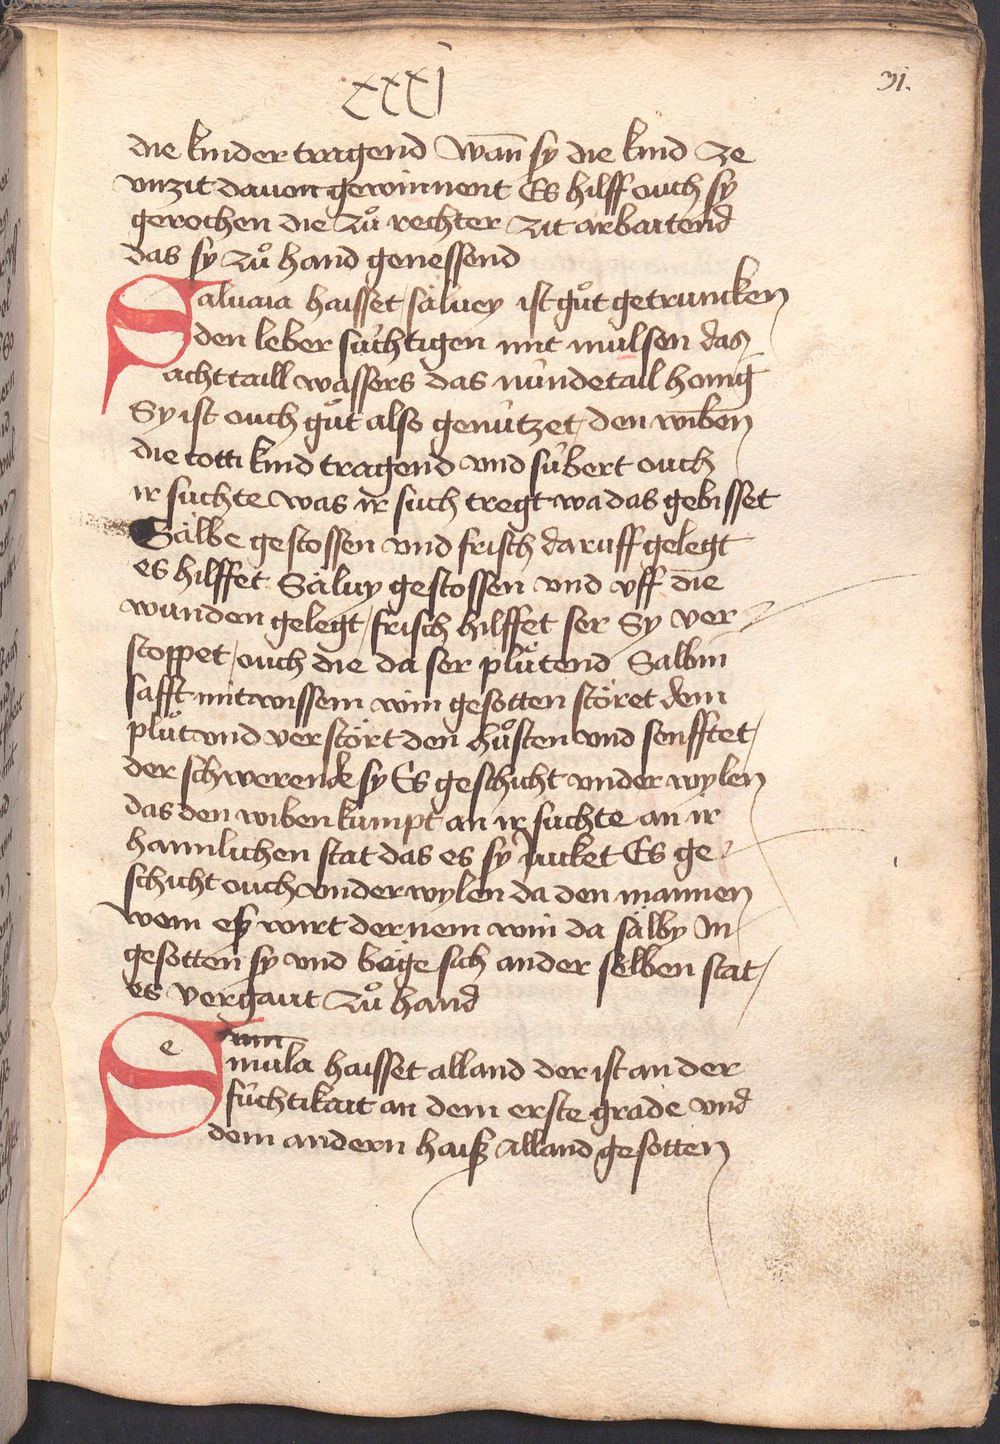 xxxj
31.
die kinder tragend Wañ sy die kind ze
vnzit dauon gewinnent Es hilff ouch sy
gerochen die zů rechter zit arbaitend
das sy zů hand genessend
Saluaia haisset säluey ist gůt getruncken
den leber súchtigen mit mulsen das
acht taill wassers das núndetail honig
Sy ist ouch gůt also genútzet den wiben
die totti kind tragend vnd súbert ouch
ir suchte was ir such tregt wa das gebisset
Sälbe gestossen vnd frisch daruff gelegt
es hilffet Säluy gestossen vnd vff die
wunden gelegt frisch hilffet ser Sy ver
stoppet ouch die da ser plůtend Salbin
safft mit wissem win gesotten störet dem
plůt vnd verstört den hůsten vnd senfftet
der schwerende sy Es geschicht vnder wylen
das den wiben kumpt an ir suchte an ir
hamlichen stat das es sy jucket Es ge
schicht ouch vnder wylen da den mannen
wem eß wirt der nem win da sälby In
gesotten sy vnd bäge sich an der selben stat
es vergaut zů hand
Se
mula haisset alland der ist an der
fúchtikait an dem erste grade vnd
dem andern haiß alland gesotten